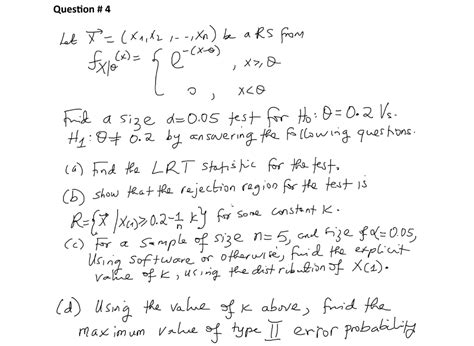 Question # 4
Let X⃗ = (X₁, X₂, ..., Xₙ) be a RS from
f_{X|θ}(x) = { e^{-(x-θ)} , x ≥ θ
0 , x < θ
Find a size α=0.05 test for H₀: θ = 0.2 Vs.
H₁: θ ≠ 0.2 by answering the following questions.
(a) Find the LRT statistic for the test.
(b) show that the rejection region for the test is
R = {X⃗ | X₍₁₎ ≥ 0.2 - 1/n K} for some constant K.
(c) For a sample of size n = 5, and size of α = 0.05,
Using software or otherwise, find the explicit
value of K, using the distribution of X(1).
(d) Using the value of K above, find the
maximum value of type II error probability